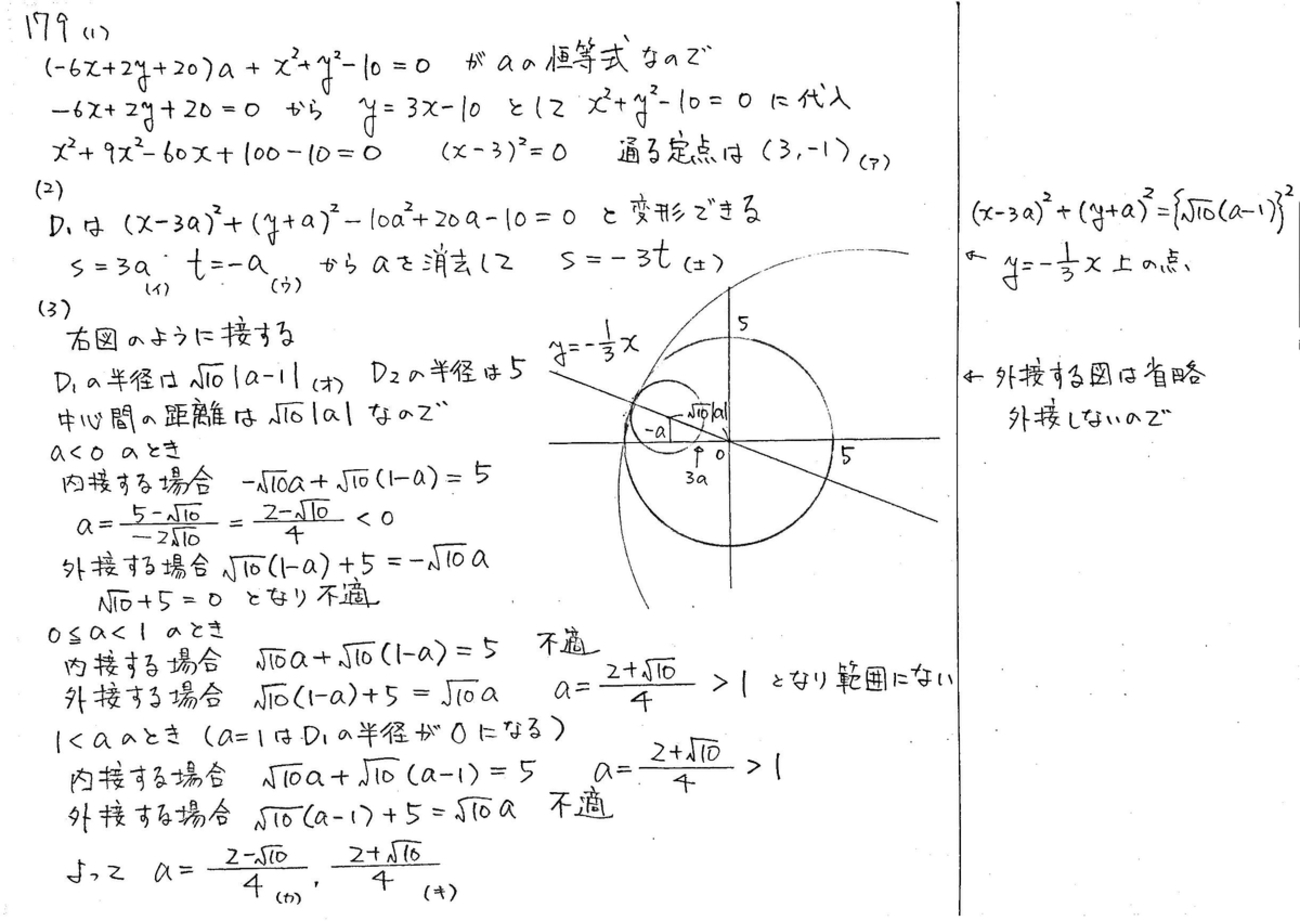 179 (1)
(-6x+2y+20)a + x²+y²-10=0 がaの恒等式なので
-6x+2y+20=0 から y=3x-10 として x²+y²-10=0 に代入
x²+9x²-60x+100-10=0 (x-3)²=0 通る定点は (3,-1) (ア)
(2)
D₁は (x-3a)²+(y+a)²-10a²+20a-10=0 と変形できる
(x-3a)²+(y+a)²={√10(a-1)}²
s=3a (イ) t=-a (ウ) からaを消去して s=-3t (エ)
← y=-1/3 x 上の点、
(3)
右図のように接する
D₁の半径は √10|a-1| (オ) D₂の半径は5
中心間の距離は √10|a| なので
y=-1/3 x
5
√10|a|
-a
0
5
3a
← 外接する図は省略
外接しないので
a<0 のとき
内接する場合 -√10a+√10(1-a)=5
a=(5-√10)/(-2√10)=(2-√10)/4<0
外接する場合 √10(1-a)+5=-√10a
√10+5=0 となり不適
0≦a<1 のとき
内接する場合 √10a+√10(1-a)=5 不適
外接する場合 √10(1-a)+5=√10a a=(2+√10)/4>1 となり範囲にない
1<aのとき (a=1はD₁の半径が0になる)
内接する場合 √10a+√10(a-1)=5 a=(2+√10)/4>1
外接する場合 √10(a-1)+5=√10a 不適
よって a=(2-√10)/4 (カ), (2+√10)/4 (キ)